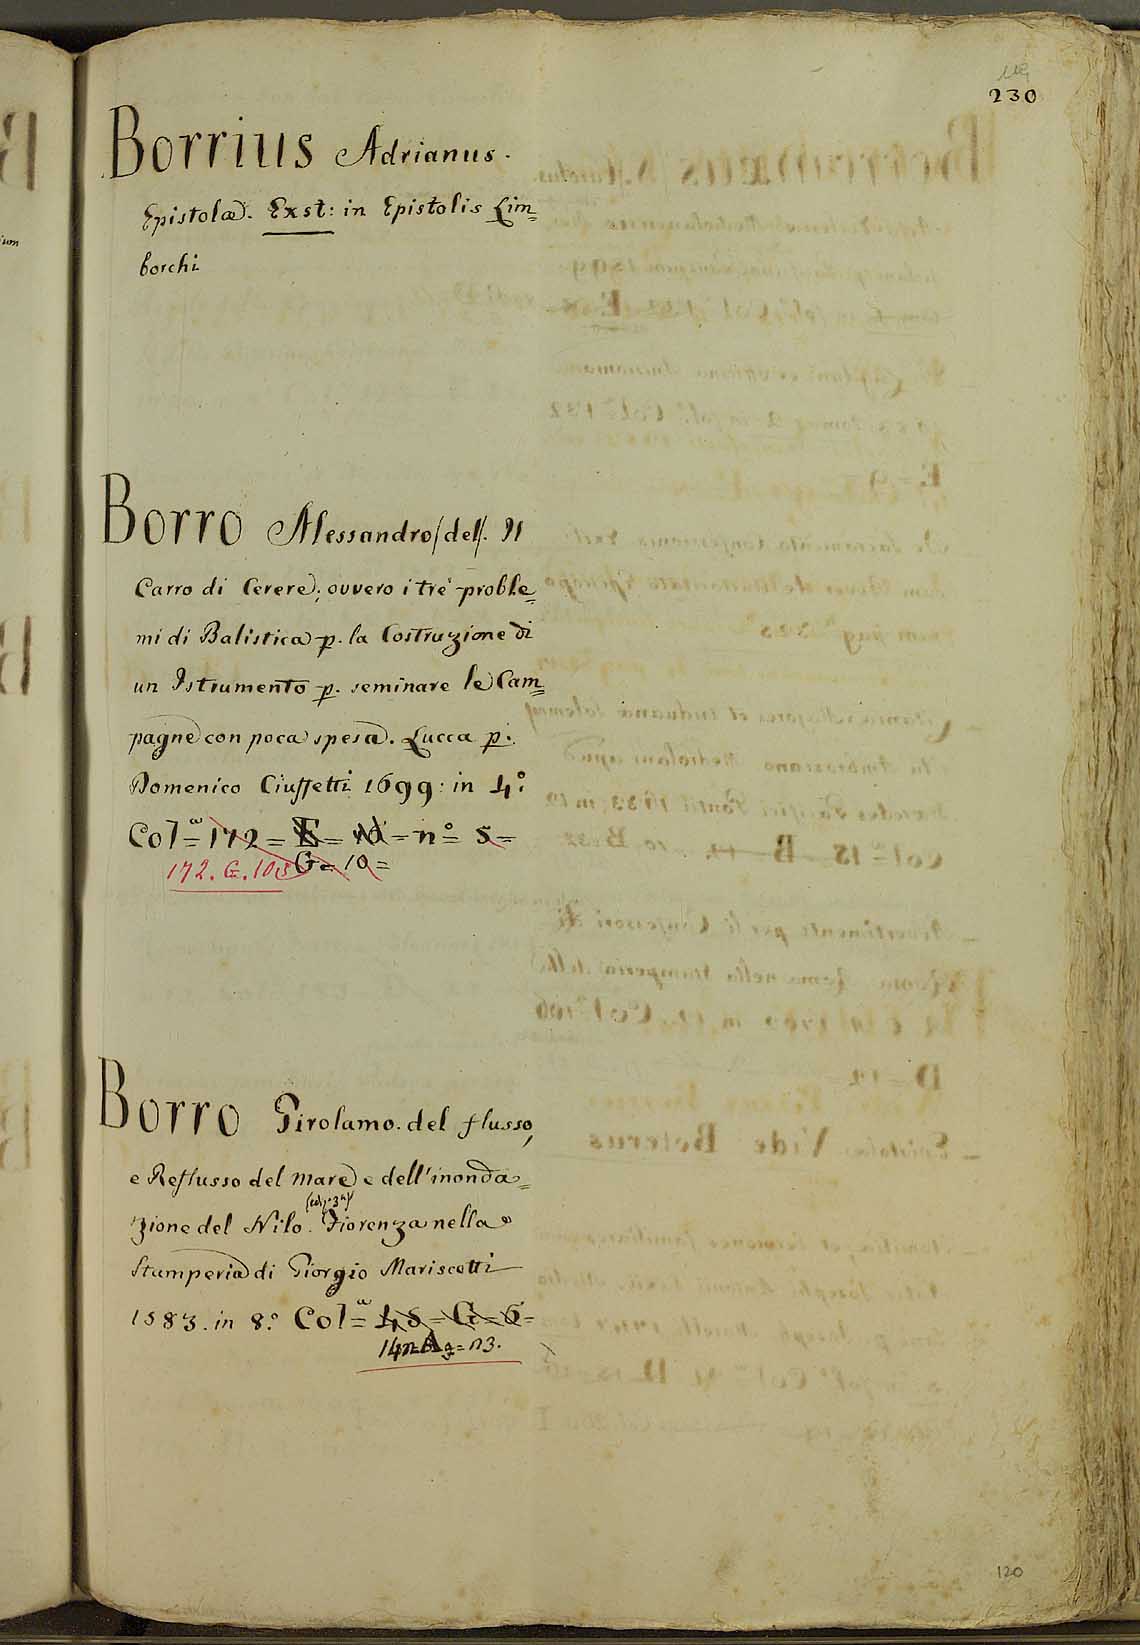 230
Borrius Adrianus.
Epistolæ. Exst: in Epistolis Lim=
borchi
Borro Alessandro/del/. Il
Carro di Cerere; ovvero i trè proble=
mi di Balistica p. la Costruzione di
un Istrumento p. seminare le Cam=
pagne con poca spesa. Lucca p.
Domenico Ciuffetti 1699: in 4°:
Colª= 172 = E = 10 = n° 5 =
172. G. 10 G = 10 =
Borro Girolamo. del flusso,
e Reflusso del mare e dell'inonda=
zione del Nilo. (ediz. 3ª) Fiorenza nella
Stamperia di Giorgio Mariscotti
1583. in 8°: Colª= 45 = G = 6 =
n3.
120